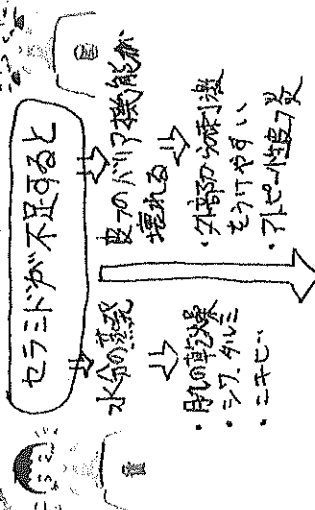 セラミドが不足すると
水分の蒸発
・肌の乾燥
・シワ、タルミ
・ニキビ…
皮フのバリア機能が
壊れる
・外部から刺激
をうけやすい
・アトピー性皮フ炎